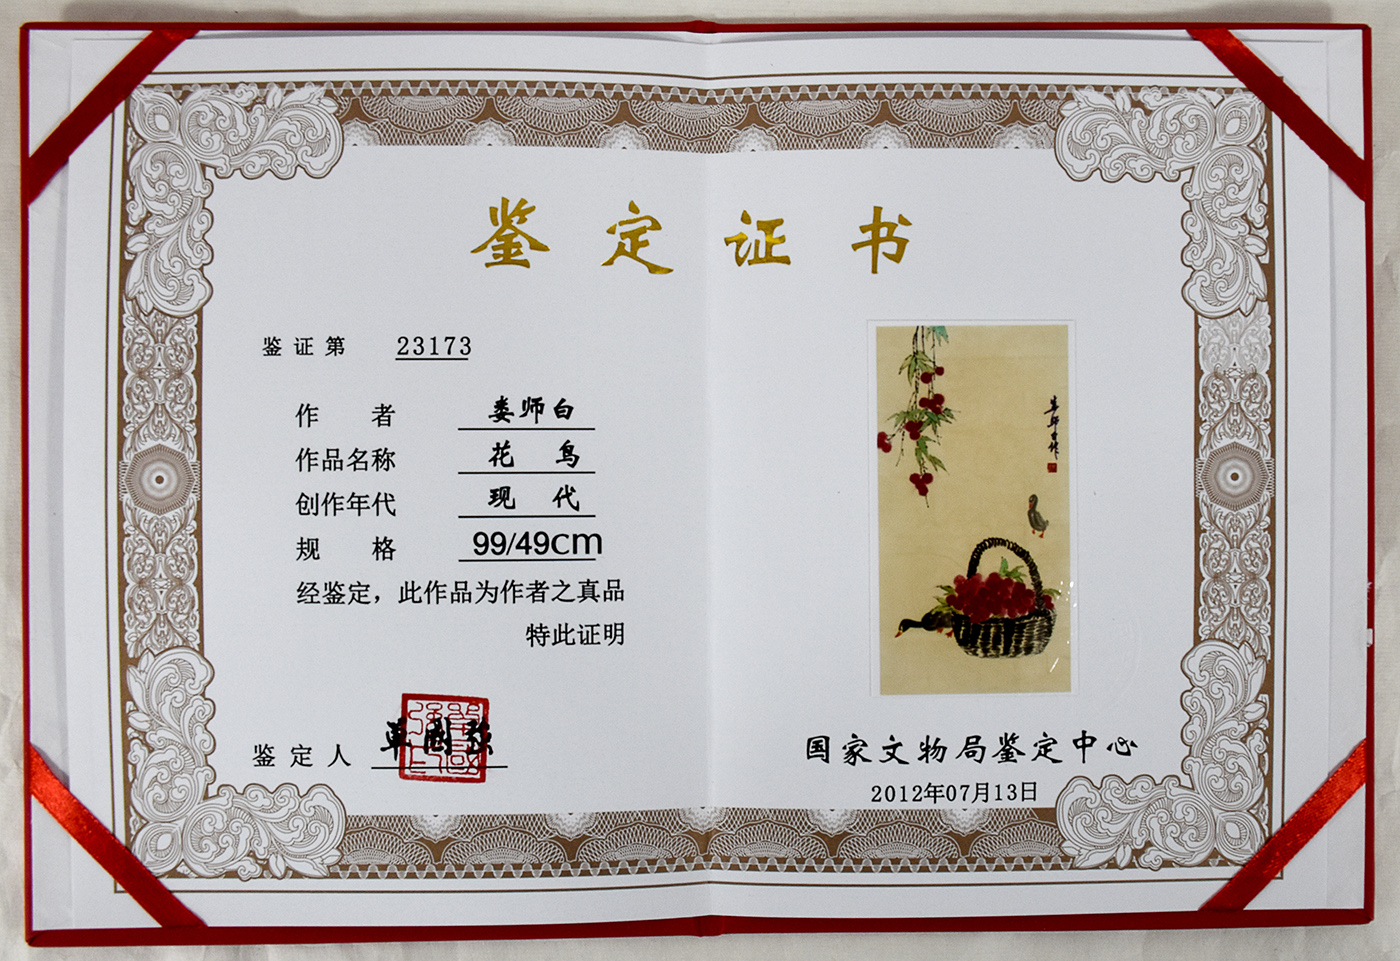 鉴定证书
鉴证第 23173
作者 娄师白
作品名称 花鸟
创作年代 现代
规格 99/49cm
经鉴定，此作品为作者之真品
特此证明
鉴定人 单国强
娄师白作
国家文物局鉴定中心
2012年07月13日